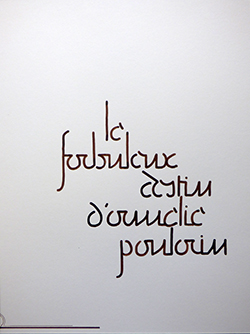 le
fabuleux
destin
d'amelie
poulain